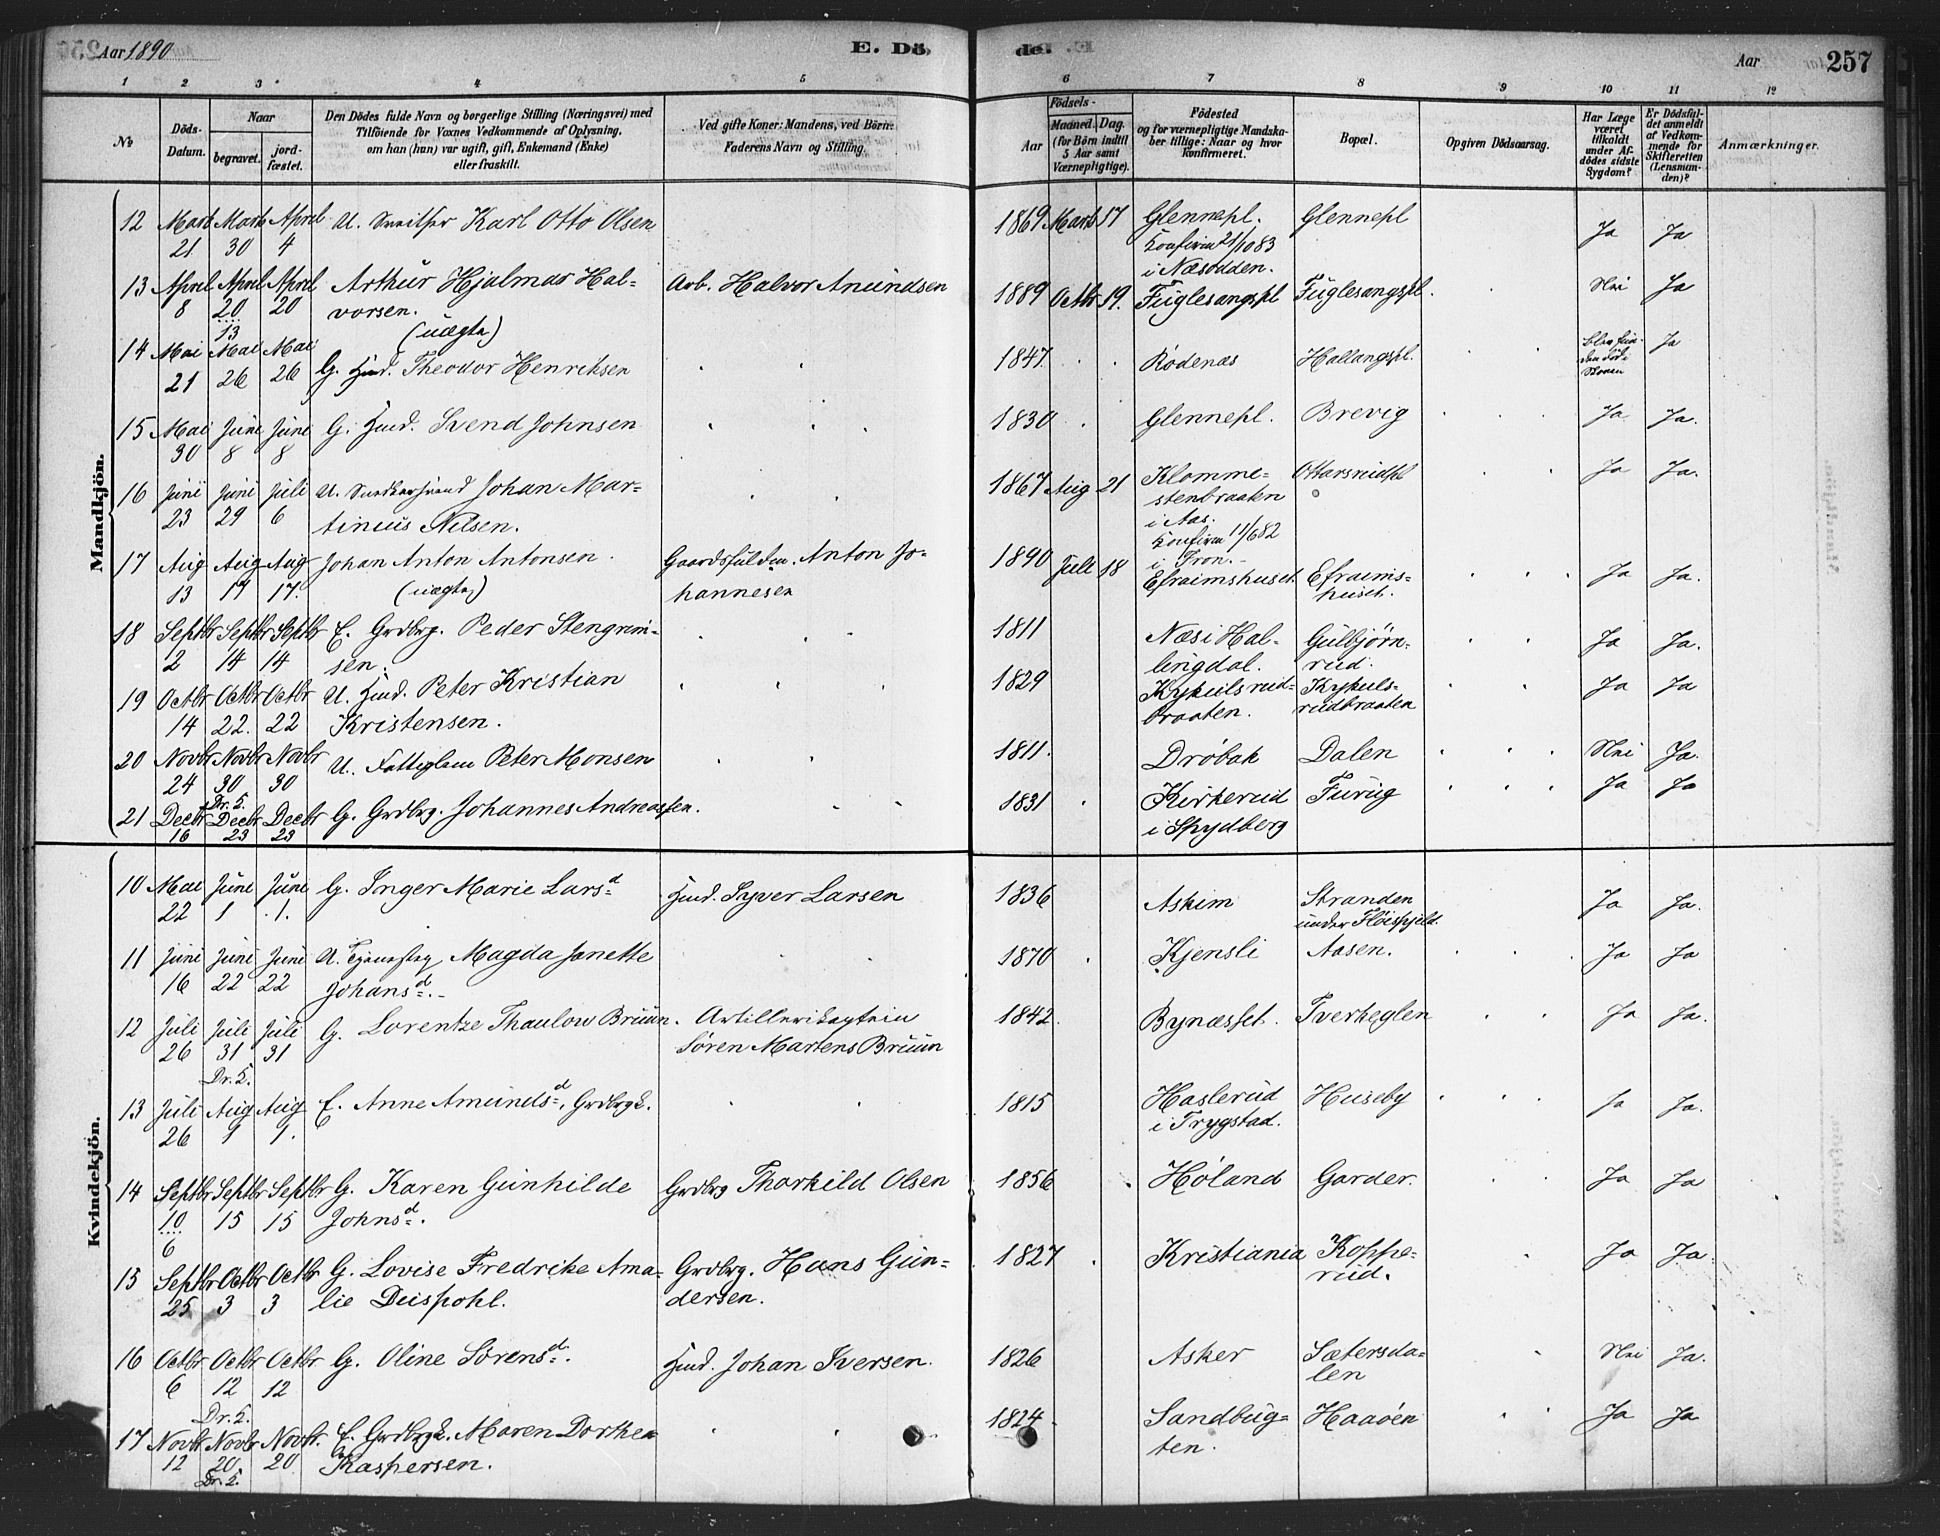 Aar 1890 E. Dö de. Aar 257
1 2 3 4 5 6 7 8 9 10 11 12
No Döds-Datum. Naar begravet. jord-fæstet. Den Dödes fulde Navn og borgerlige Stilling (Næringsvei) med Tilföiende for Voxnes Vedkommende af Oplysning, om han (hun) var ugift, gift, Enkemand (Enke) eller fraskilt. Ved gifte Koner: Mandens, ved Börn: Faderens Navn og Stilling. Födsels- Aar Maaned. Dag. (for Börn indtil 5 Aar samt Værnepligtige). Födested og for værnepligtige Mandska-ber tillige: Naar og hvor konfirmeret. Bopæl. Opgiven Dödsaarsag. Har Læge været tilkaldt under Af-dödes sidste Sygdom? Er Dödsfal-det anmeldt af Vedkom-mende for Skifteretten (Lensman-den)? Anmærkninger.
Mandkjön.
12 Marts 21 Marts 30 April 4 U. Karl Otto Olsen 1869 Marts 17 Glennepl. Konfirm 21/10 83 i Næsodden. Glennepl Ja Ja
13 April 8 April 20 13 April 20 Arthur Hjalmar Hal-vorsen. (uægte) Arb. Halvor Anundsen 1889 Octbr 19. Fuglesangspl Fuglesangspl. Nei Ja
14 Mai 21 Mai 26 Mai 26 G. Husm. Theodor Henriksen 1847. Rödenæs Hallangspl. Ja
15 Mai 30 Juni 8 Juni 8 G. Husm. Svend Johnsen 1830 Glennepl. Brevig Ja Ja.
16 Juni 23 Juni 29 Juli 6 U. Johan Mar-tinius Nilsen. 1867 Aug 21 Klomme-stenbraaten i Aas. Konfirm 11/6 82 i Kron. Ottarsrudpl Ja Ja.
17 Aug 13 Aug 17 Aug 17. Johan Anton Antonsen. (uægte) Anton Jo-hannesen 1890 Juli 18 Efraimshuset. Efraims-huset. Ja Ja.
18 Septbr 2 Septbr 14 Septbr 14 E. Grdbrg. Peder Stengrim-sen. 1811 Næs i Hal-lingdal. Gulbjörn-rud. Ja Ja.
19 Octbr 14 Octbr 22. Octbr 22 U. Husm. Peter Kristian Kristensen. 1829 Kykulsrud-braaten. Kykuls-rudbraaten Ja Ja
20 Novbr 24 Novbr 30 Dr. K. Novbr 30 U. Fattiglem Peter Monsen 1811. Dröbak Dalen Nei Ja.
21 Decbr 16 Decbr 23 Decbr 23 G. Grdbrg. Johannes Andreassen. 1831 Kirkerud i Spydberg Furug Ja Ja
Kvindekjön.
10 Mai 22 Juni 1 Juni 1. G. Inger Marie Larsd Husm. Syver Larsen 1836 Askim Stranden under Flöispjeld. Ja Ja.
11 Juni 16 Juni 22 Juni 22 U. Tjenestepg Magda Janette Johansd. 1870 Kjensli Aasen. Ja Ja
12 Juli 26 Juli 31 Dr. K. Juli 31 G. Lorentze Thaulow Bruun. Artillerikaptein Sören Martens Bruun 1842. Bynæsset. Tverkeglen Ja Ja.
13 Juli 26 Aug 1 Aug 1. E. Anne Amundsd, Grdbrgk. 1815 Haslerud i Trygstad. Huseby Ja Ja.
14 Septbr 10 6 Septbr 15 Septbr 15 G. Karen Gunhilde Johnsd. Grdbrg Thorkild Olsen 1856 Höland Garder. Ja Ja
15 Septbr 25 Octbr 3 Octbr 3 G. Lovise Fredrike Ama-lie Duspohl. Grdbrg. Hans Gun-dersen. 1827 Kristiania Koppe-rud. Ja Ja.
16 Octbr 6 Octbr 12 Dr. K. Octbr 12 G. Oline Sörensd. Husm. Johan Iversen. 1826 Asker Sætersda-len Nei Ja.
17 Novbr 12 Novbr 20 Dr. K. Novbr. 20 E. Grdbrgk. Maren Dorthea Kaspersen. 1824 Sandbug-ten. Haaöen Ja Ja